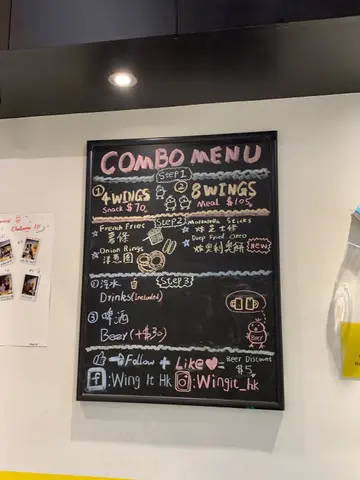 COMBO MENU
Step 1
① 4 WINGS
Snack $70
② 8 WINGS
Meal $105
Step 2
French Fries
薯條
Onion Rings
洋蔥圈
Mozzarella Sticks
炸芝士條
Deep Fried Oreo
炸奧利奧餅 NEW
Step 3
① 汽水
Drinks (Included)
② 啤酒
Beer (+$30)
Beer
Follow + Like
Beer Discount
$5
f : Wing It Hk
: Wingit_hk